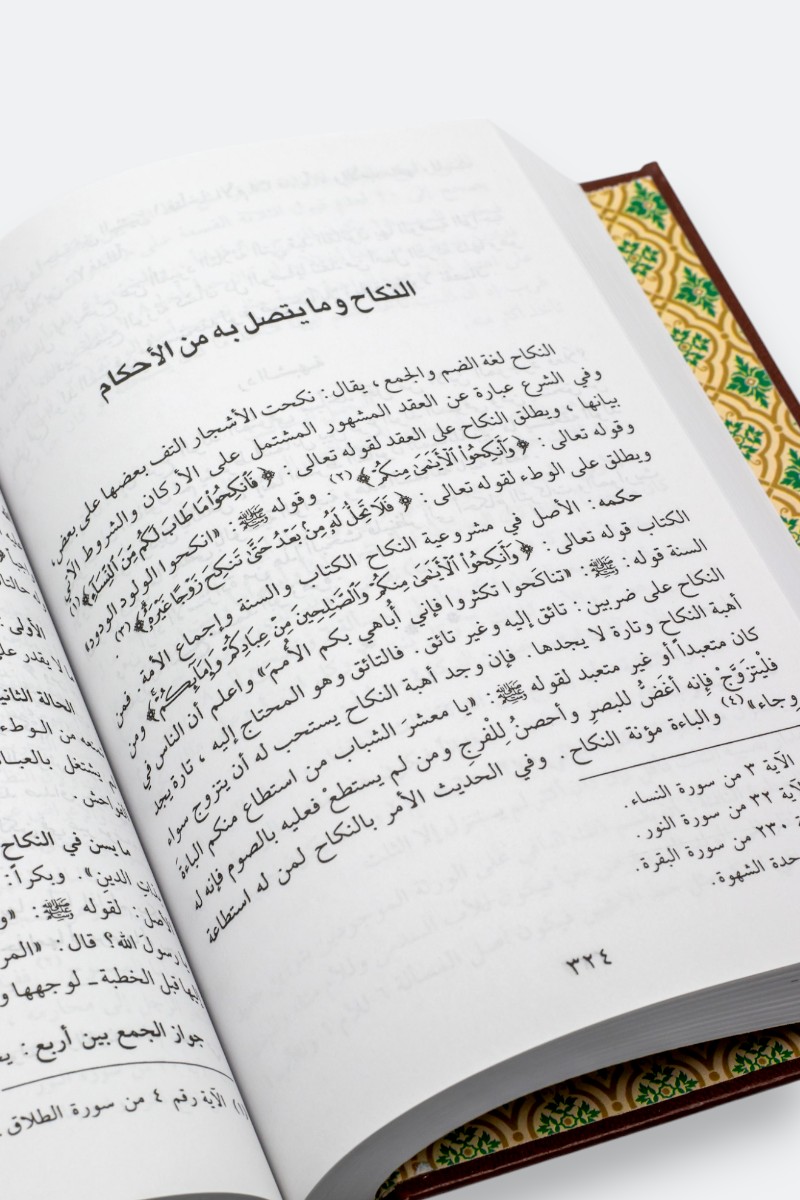 النكاح وما يتصل به من الأحكام
النكاح لغة الضم والجمع ، يقال : نكحت الأشجار التف بعضها على بعض ،
وفي الشرع عبارة عن العقد المشهور المشتمل على الأركان والشروط الآتي
بيانها ، ويطلق النكاح على العقد لقوله تعالى : ﴿ فَٱنكِحُوا۟ مَا طَابَ لَكُم مِّنَ ٱلنِّسَآءِ ﴾ (١)
وقوله تعالى : ﴿ وَأَنكِحُوا۟ ٱلْأَيَٰمَىٰ مِنكُمْ ﴾ (٢) . وقوله ﷺ : «انكحوا الولود الودود»
ويطلق على الوطء لقوله تعالى : ﴿ فَلَا تَحِلُّ لَهُۥ مِنۢ بَعْدُ حَتَّىٰ تَنكِحَ زَوْجًا غَيْرَهُۥ ﴾ (٣) .
حكمه : الأصل في مشروعية النكاح الكتاب والسنة وإجماع الأمة . فمن
الكتاب قوله تعالى : ﴿ وَأَنكِحُوا۟ ٱلْأَيَٰمَىٰ مِنكُمْ وَٱلصَّٰلِحِينَ مِنْ عِبَادِكُمْ وَإِمَآئِكُمْ ﴾ ومن
السنة قوله : ﷺ : «تناكحوا تكثروا فإني أُباهي بكم الأممَ» واعلم أن الناس في
النكاح على ضربين : تائق إليه وغير تائق . فالتائق وهو المحتاج إليه ، تارة يجد
أهبة النكاح وتارة لا يجدها . فإن وجد أهبة النكاح يستحب له أن يتزوج سواء
كان متعبداً أو غير متعبد لقوله ﷺ : «يا معشرَ الشباب من استطاع منكم الباءةَ
فلْيتزوَّجْ فإِنه أغضُ للبصرِ وأحصنُ لِلْفرجِ ومن لم يستطعْ فعليه بالصوم فإنه له
وجاء» (٤) والباءة مؤنة النكاح . وفي الحديث الأمر بالنكاح لمن له استطاعة
الآية ٣ من سورة النساء .
الآية ٣٢ من سورة النور .
٢٣٠ من سورة البقرة .
حدة الشهوة .
٣٢٤
الأولى :
لا يقدر على
الحالة الثانية
من الوطء
يشتغل بالعبا
ما يسن في النكاح
الدين» . وبكراً :
لقوله ﷺ : «و
رسولَ الله؟ قال : «المر
قبل الخطبة ـ لوجهها و
جواز الجمع بين أربع :
(١) الآية رقم ٤ من سورة الطلاق .